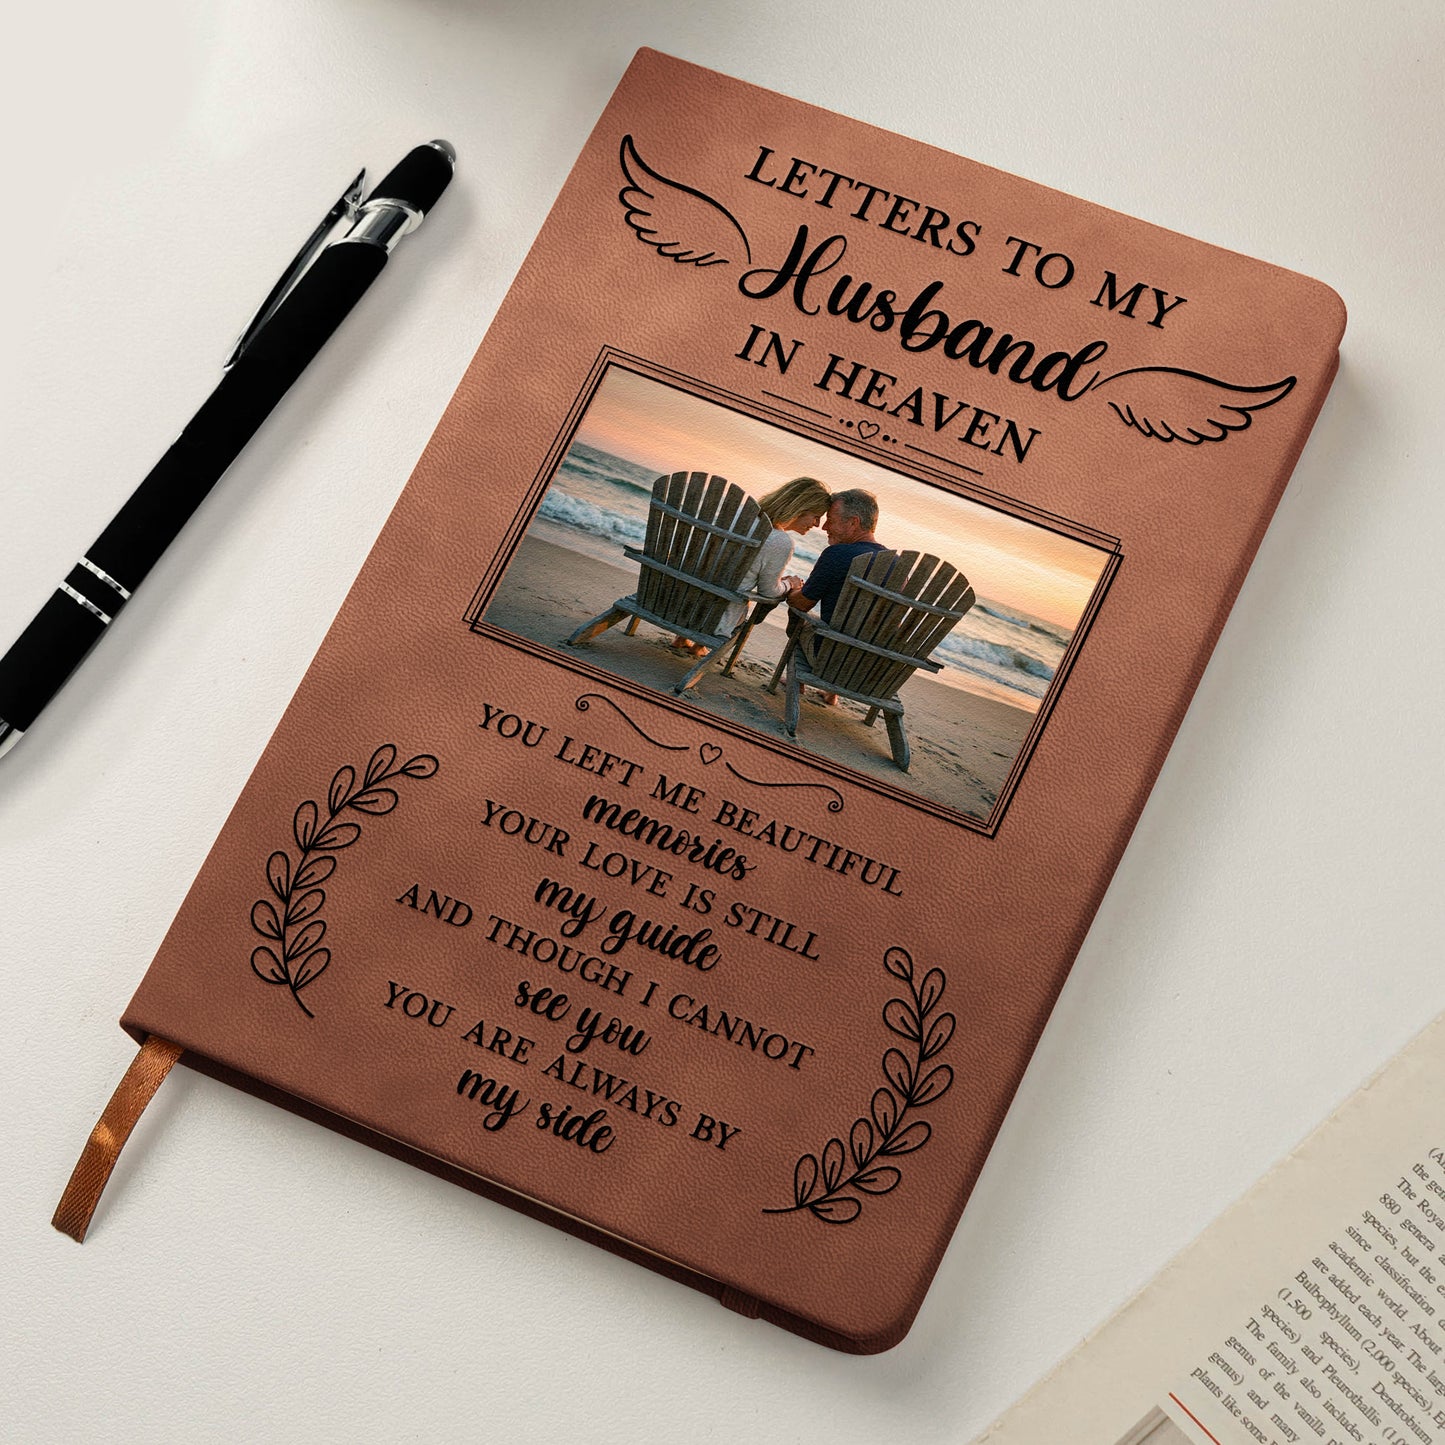 LETTERS TO MY
Husband
IN HEAVEN
YOU LEFT ME BEAUTIFUL
memories
YOUR LOVE IS STILL
my guide
AND THOUGH I CANNOT
see you
YOU ARE ALWAYS BY
my side
the
The Royal
880 genera
species, but the
since classification
academic world. About
are added each year. The
Bulbophyllum (2,000 species),
(1,500 species), Dendrobium
species) and Pleurothallis
The family also includes
genus of the vanilla
genus) and many
plants like some